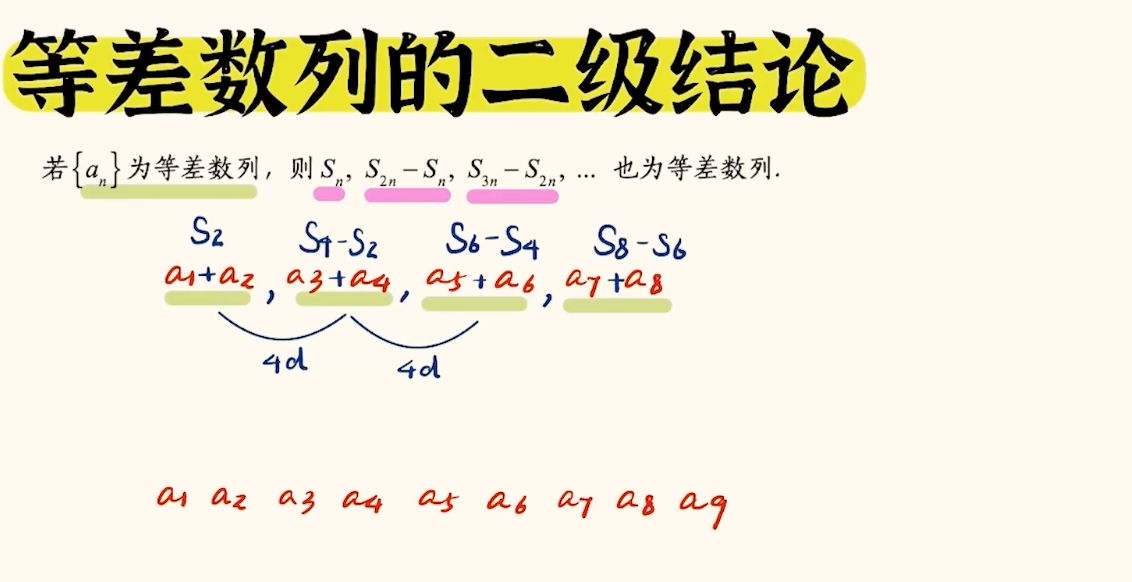 等差数列的二级结论
若{aₙ}为等差数列，则 Sₙ, S₂ₙ－Sₙ, S₃ₙ－S₂ₙ, … 也为等差数列.
S₂ S₄-S₂ S₆-S₄ S₈-S₆
a₁+a₂, a₃+a₄, a₅+a₆, a₇+a₈
4d 4d
a₁ a₂ a₃ a₄ a₅ a₆ a₇ a₈ a₉